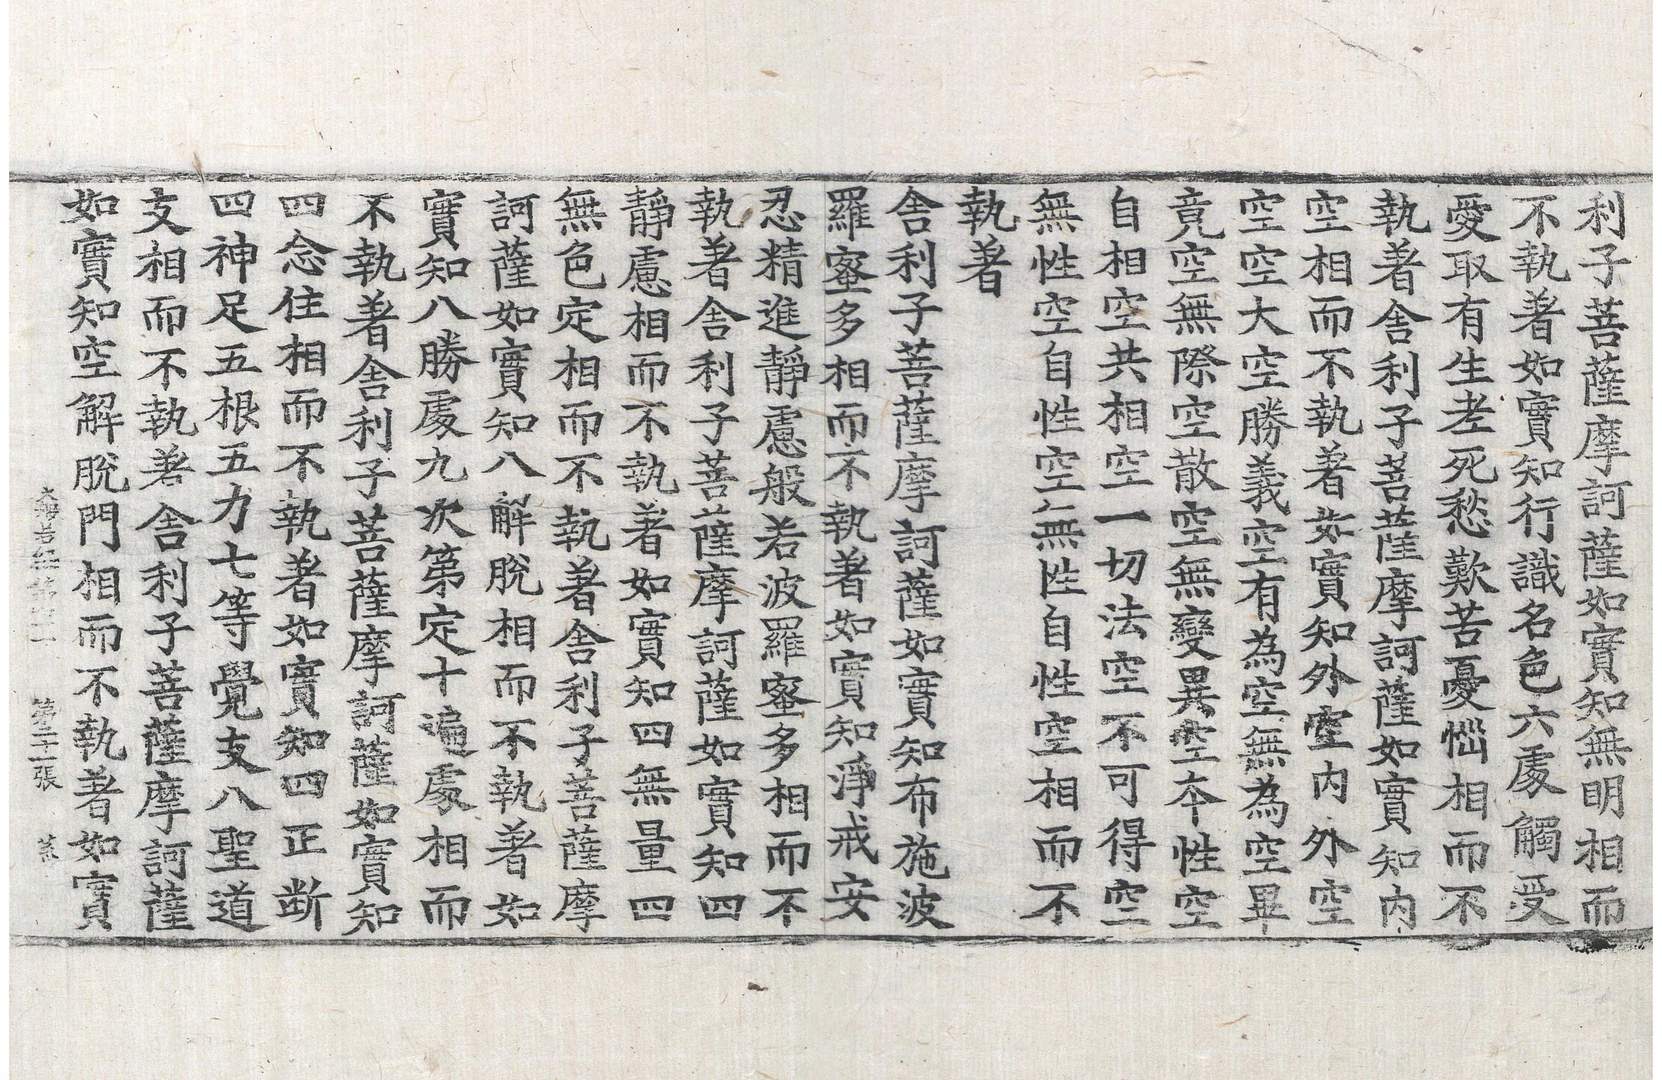 利子菩薩摩訶薩如實知無明相而
不執著如實知行識名色六處觸受
愛取有生老死愁歎苦憂惱相而不
執著舍利子菩薩摩訶薩如實知內
空相而不執著如實知外空內外空
空空大空勝義空有為空無為空畢
竟空無際空散空無變異空本性空
自相空共相空一切法空不可得空
無性空自性空無性自性空相而不
執著
舍利子菩薩摩訶薩如實知布施波
羅蜜多相而不執著如實知淨戒安
忍精進靜慮般若波羅蜜多相而不
執著舍利子菩薩摩訶薩如實知四
靜慮相而不執著如實知四無量四
無色定相而不執著舍利子菩薩摩
訶薩如實知八解脫相而不執著如
實知八勝處九次第定十遍處相而
不執著舍利子菩薩摩訶薩如實知
四念住相而不執著如實知四正斷
四神足五根五力七等覺支八聖道
支相而不執著舍利子菩薩摩訶薩
如實知空解脫門相而不執著如實
第二十一張